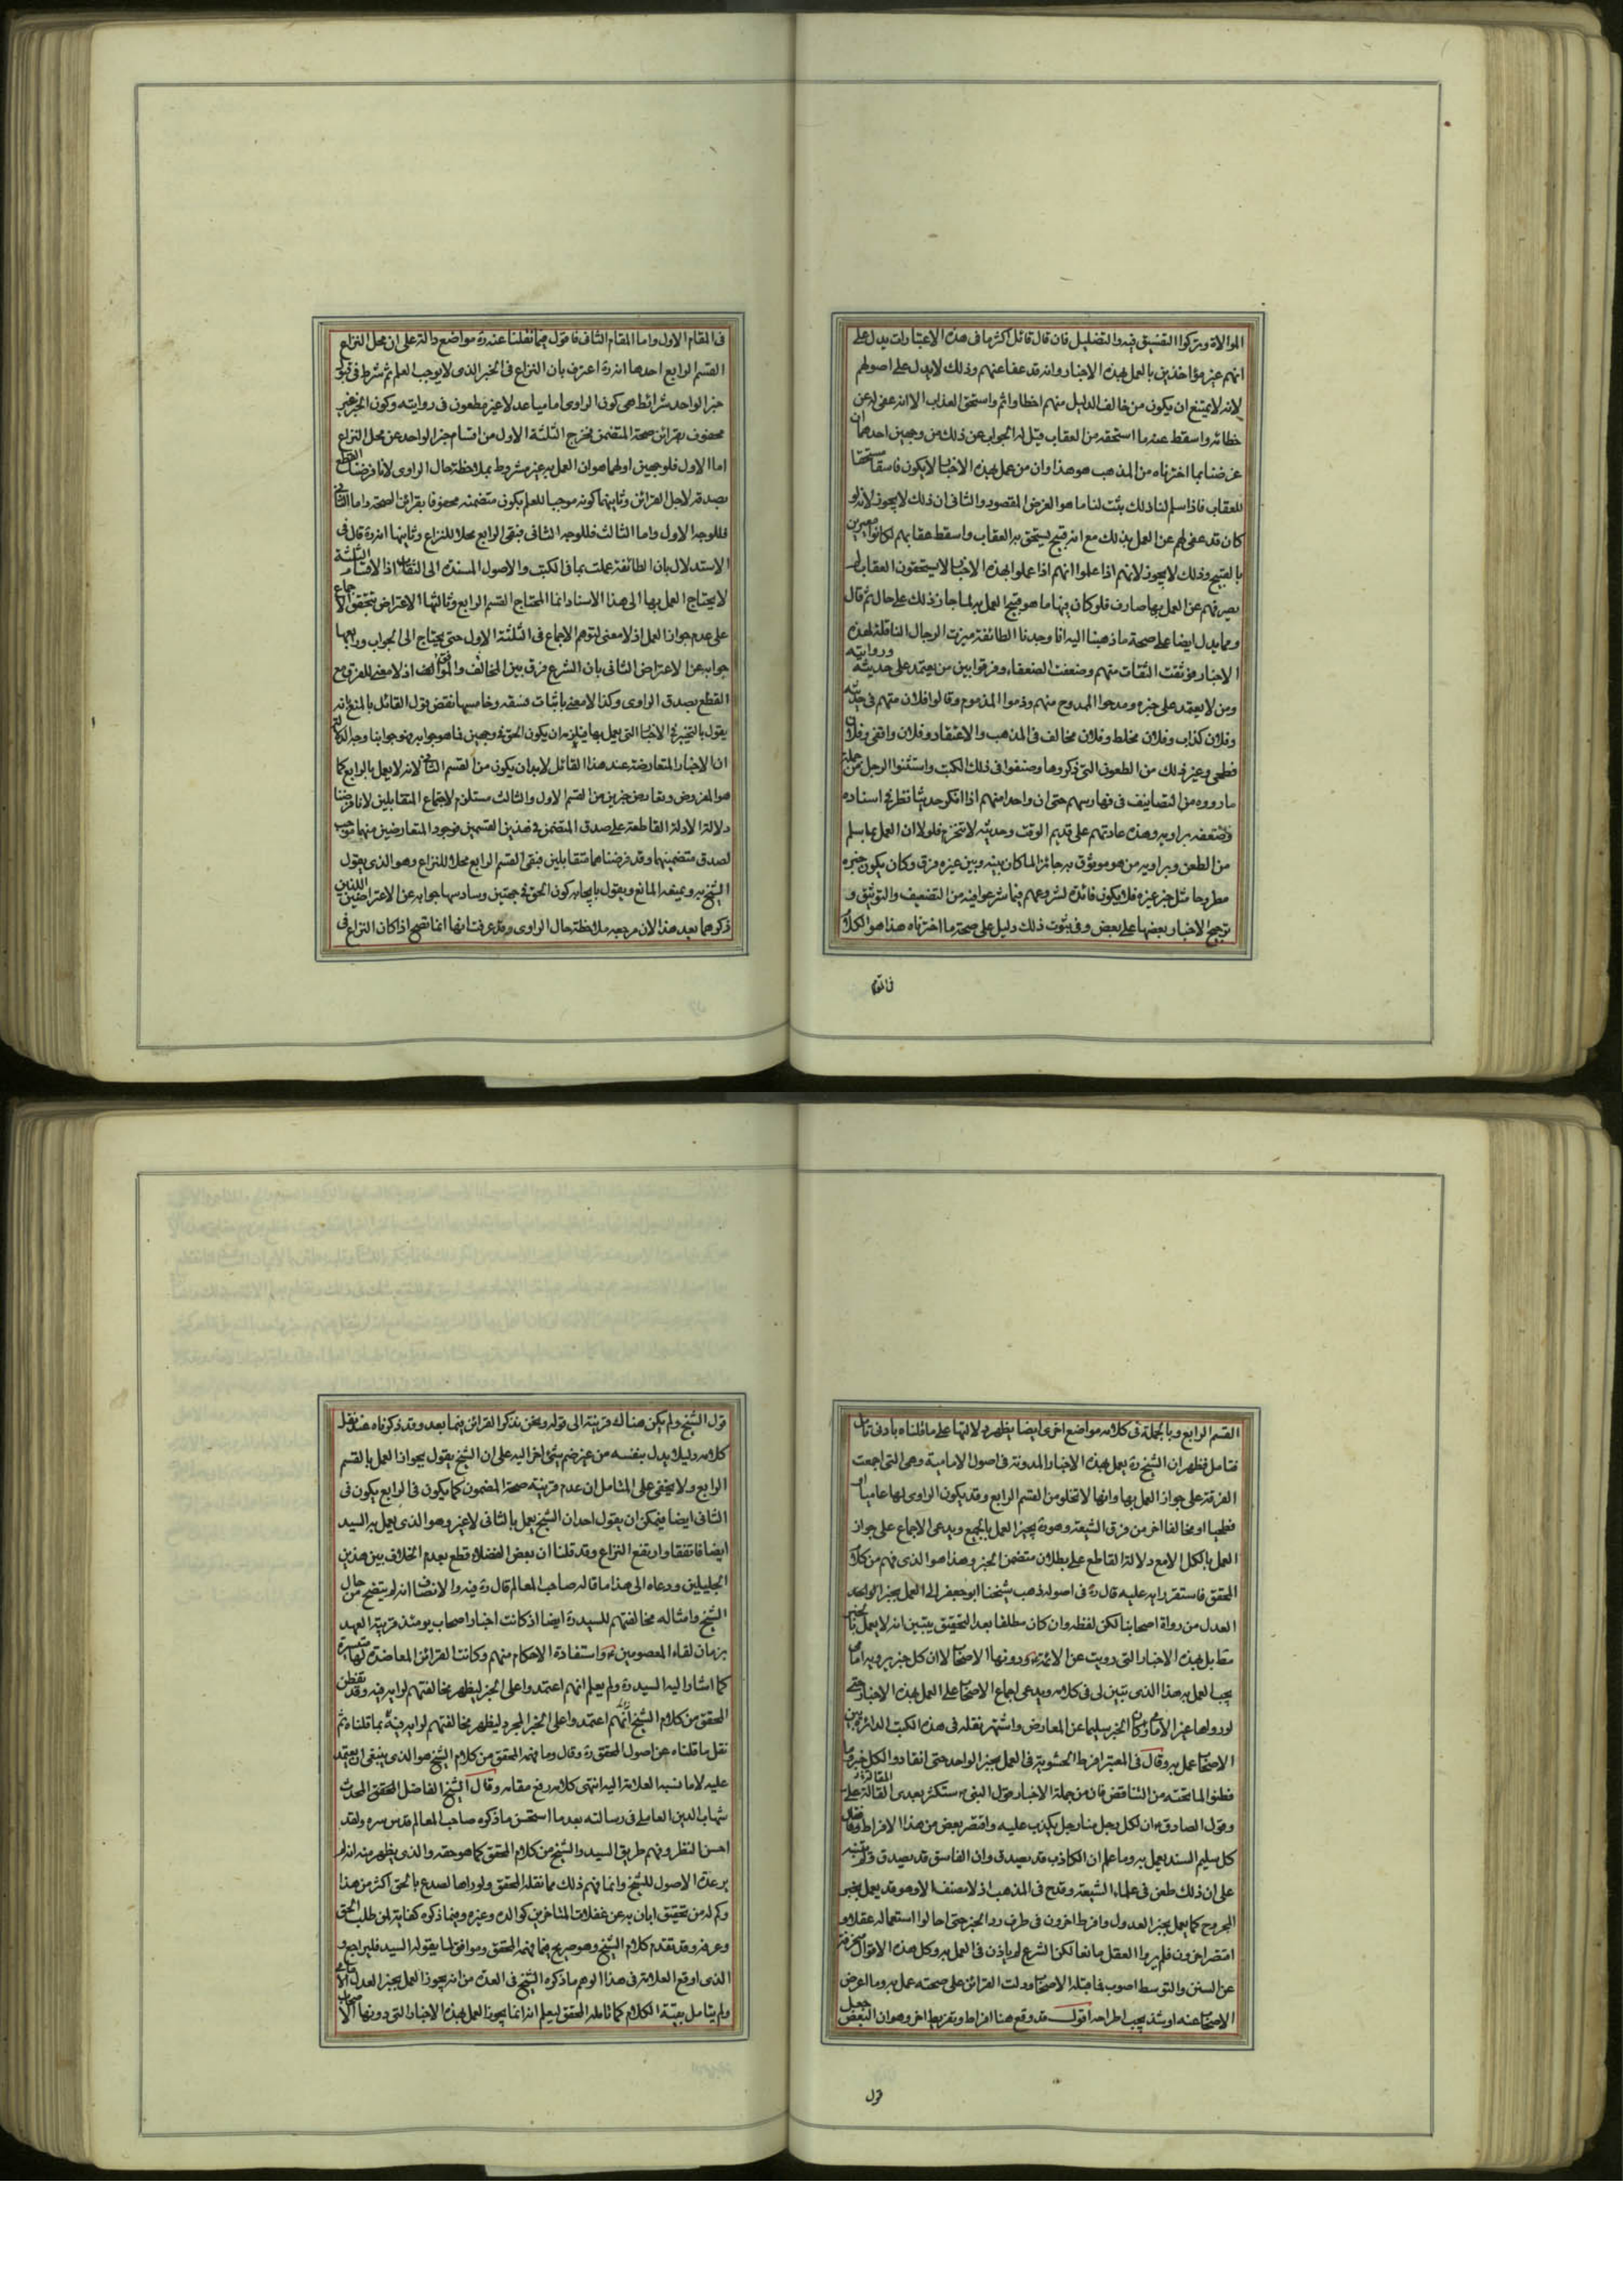 الموالاة ويتركوا التفسيق فيه والتضليل فان قال قائل اكثر ما فى هذه الاعتبارات يدل على
انهم غير مؤاخذين بالعمل بهذه الاخبار وانه قد عفا عنهم وذلك لا يدل على اصولهم
لانه لا يمتنع ان يكون من خالف الدليل منهم اخطا واثم واستحق العذاب الا انه عفى له عن
خطائه واسقط عنه ما استحقه من العقاب قيل له الجواب عن ذلك من وجهين احدهما ان
غرضنا بما اخترناه من المذهب هو هذا وان من عمل بهذه الاخبار لا يكون فاسقا مستحقا
للعقاب فاذا سلم لنا ذلك ثبت لنا ما هو الغرض المقصود والثانى ان ذلك لا يجوز لانه لو
كان قد عفى لهم عن العمل بذلك مع انه قبيح يستحق به العقاب واسقط عقابهم لكانوا مغرين
بالقبيح وذلك لا يجوز لانهم اذا علموا انهم اذا عملوا بهذه الاخبار لا يستحقون العقاب لم
يصرفهم عن العمل بها صارف فلو كان فيها ما هو قبيح العمل به لما جاز ذلك على حال ثم قال
ومما يدل ايضا على صحة ما ذهبنا اليه انا وجدنا الطائفة ميزت الرجال الناقلة لهذه
الاخبار فوثقت الثقات منهم وضعفت الضعفاء وفرقوا بين من يعتمد على حديثه وروايته
ومن لا يعتمد على خبره ومدحوا الممدوح منهم وذموا المذموم وقالوا فلان متهم فى حديثه
وفلان كذاب وفلان مخلط وفلان مخالف فى المذهب والاعتقاد وفلان واقفى وفلان
فطحى وغير ذلك من الطعون التى ذكروها وصنفوا فى ذلك الكتب واستثنوا الرجل من جملة
ما رووه من التصانيف فى فهارسهم حتى ان واحدا منهم اذا انكر حديثا نظر فى اسناده
وضعفه براويه وهذه عادتهم على قديم الوقت وحديثه لا تنخرم فلولا ان العمل بما يسلم
من الطعن ويرويه من هو موثوق به جائز لما كان بينه وبين غيره فرق وكان يكون خبره
مطروحا مثل خبر غيره فلا يكون فائدة لشروعهم فيما شرعوا فيه من التضعيف والتوثيق و
ترجيح الاخبار بعضها على بعض وفى ثبوت ذلك دليل على صحة ما اخترناه هذا هو الكلام
فى المقام
فى المقام الاول واما المقام الثانى فاقول فيما نقلنا عنه ره مواضع دالة على ان محل النزاع
القسم الرابع احدها انه ره اعترف بان النزاع فى الخبر الذى لا يوجب العلم ثم شرط فى قبول
خبر الواحد شرائط هى كون الراوى اماميا عدلا غير مطعون فى روايته وكون الخبر غير
محفوف بقرائن صحة المتضمن فخرج الثلثة الاول من اقسام خبر الواحد عن محل النزاع
اما الاول فلوجهين اولهما هو ان العمل به غير مشروط بملاحظة حال الراوى لانا فرضنا القطع
بصدقه لاجل القرائن وثانيهما كونه موجبا للعلم بكون متضمنه محفوفا بقرائن الصحة واما الثانى
فللوجه الاول واما الثالث فللوجه الثانى فبقى الرابع محلا للنزاع وثانيها انه ره قال فى
الاستدلال بان الطائفة عملت بما فى الكتب والاصول المسندة الى الثقات اذ الاقسام الثلثة
لا يحتاج العمل بها الى هذا الاسناد انما المحتاج القسم الرابع وثالثها الاعتراض بتحقق الاجماع
على عدم جواز العمل اذ لا معنى لتوهم الاجماع فى الثلثة الاول حتى يحتاج الى الجواب ورابعها
جوابه عن الاعتراض الثانى بان الشرع فرق بين المخالف والموالف اذ لا معنى للفرق مع
القطع بصدق الراوى وكذا لا معنى باثبات فسقه وخامسها نقض قول القائل بالمنع انه
يقول بالتخيير فى الاخبار التى يعمل بها فيلزمه ان يكون الحق فى وجهين فما هو جوابه فهو جوابنا وجه الدلالة
ان الاخبار المتعارضة عند هذا القائل لا بد ان يكون من القسم الثانى لانه لا يعمل بالرابع كما
هو المفروض وتعارض خبرين من القسم الاول والثالث مستلزم لاجتماع المتقابلين لانا فرضنا
دلالة الادلة القاطعة على صدق المتضمن فى هذين القسمين فوجود المتعارضين منهما موجب
لصدق متضمنيهما وقد فرضناهما متقابلين فبقى القسم الرابع محلا للنزاع وهو الذى يقول
الشيخ به ويمنعه المانع ويقول بايجابه كون الحق فى جهتين وسادسها جوابه عن الاعتراضين اللذين
ذكرهما بعد هذا لان مرجعه ملاحظة حال الراوى وقد عرفت انها انما تصح اذا كان النزاع فى
القسم الرابع وبالجملة فى كلامه مواضع اخرى ايضا يظهر دلالتها على ما قلناه بادنى تامل
فتامل فظهر ان الشيخ ره يعمل بهذه الاخبار المدونة فى اصول الامامية وهى التى اجمعت
الفرقة على جواز العمل بها وانها لا تخلو من القسم الرابع وقد يكون الراوى لها عاميا او
فطحيا او مخالفا اخر من فرق الشيعة وهو ره يجيز العمل بالجميع ويدعى الاجماع على جواز
العمل بالكل الا مع دلالة القاطع على بطلان متضمن الخبر وهذا هو الذى فهم من كلامه
المحقق فاستقر رايه عليه قال ره فى اصوله ذهب شيخنا ابو جعفر الى العمل بخبر الواحد
العدل من رواة اصحابنا لكن لفظه وان كان مطلقا بعد التحقيق يتبين انه لا يعمل بالخبر
مطلقا بل بهذه الاخبار التى رويت عن الائمة ع ودونها الاصحاب لا ان كل خبر يرويه امامى
يجب العمل به هذا الذى تبين لى فى كلامه ويدعى اجماع الاصحاب على العمل بهذه الاخبار حتى
لو رواها غير الامامى وكان الخبر سليما عن المعارض واشتهر نقله فى هذه الكتب الدائرة بين
الاصحاب عمل به وقال فى المعتبر افرط الحشوية فى العمل بخبر الواحد حتى انقادوا لكل خبر وما
فطنوا لما تحته من التناقض فان من جملة الاخبار قول النبى ص ستكثر بعدى القالة على
وقول الصادق ع ان لكل رجل منا رجل يكذب عليه واقتصر بعض من هذا الافراط وقال
كل سليم السند يعمل به وما علم ان الكاذب قد يصدق وان الفاسق قد يصدق ولم يتنبه
على ان ذلك طعن فى علماء الشيعة وقدح فى المذهب اذ لا مصنف الا وهو قد يعمل بخبر
المجروح كما يعمل بخبر العدول وافرط اخرون فى طرف رد الخبر حتى احالوا استعماله عقلا و
اقتصر اخرون فلم يروا العقل مانعا لكن الشرع لم ياذن فى العمل به وكل هذه الاقوال منحرفة
عن السنن والتوسط اصوب فما قبله الاصحاب او دلت القرائن على صحته عمل به وما اعرض
الاصحاب عنه او شذ يجب اطراحه اقول قد وقع هنا افراط وتفريط اخر وهو ان البعض جعل
قول
قول الشيخ ولم يكن هناك قرينة الى قوله ونحن نذكر القرائن فيما بعد وقد ذكرناه عند نقل
كلامه دليلا يدل بنفسه من غير ضم شئ اخر اليه على ان الشيخ يقول بجواز العمل بالقسم
الرابع ولا يخفى على المتامل ان عدم قرينة صحة المضمون كما يكون فى الرابع يكون فى
الثانى ايضا فيمكن ان يقول احد ان الشيخ يعمل بالثانى لا غير وهو الذى يعمل به السيد
ايضا فاتفقا وارتفع النزاع وقد قلنا ان بعض الفضلاء قطع بعدم الخلاف بين هذين
الجليلين ودعاه الى هذا ما قاله صاحب المعالم قال ره فيه والانصاف انه لم يتضح من حال
الشيخ وامثاله مخالفتهم للسيد ره ايضا اذ كانت اخبار اصحاب يومئذ قريبة العهد
بزمان لقاء المعصومين ع واستفادة الاحكام منهم وكانت القرائن المعاضدة لها متيسرة
كما اشار اليه السيد ره ولم يعلم انهم اعتمدوا على الخبر ليظهر مخالفتهم لرايه فيه وقد تفطن
المحقق من كلام الشيخ انهم اعتمدوا على الخبر المجرد ليظهر مخالفتهم لرايه فيه بما قلناه ثم
نقل ما قلناه عن اصول المحقق ره وقال وما فهمه المحقق من كلام الشيخ هو الذى ينبغى ان يعتمد
عليه لا ما نسبه العلامة اليه انتهى كلامه رفع مقامه وقال الشيخ الفاضل المحقق المحدث
شهاب الدين العاملى فى رسالته بعد ما استحسن ما ذكره صاحب المعالم قدس سره ولقد
احسن النظر وفهم طريق السيد والشيخ من كلام المحقق كما هو حقه والذى يظهر منه انه لم
ير عدة الاصول للشيخ وانما فهم ذلك مما نقله المحقق ولو راها لصدع بالحق اكثر من هذا
وكم له من تحقيق ابان به عن غفلات المتاخرين كوالده وغيره وفيما ذكره كفاية لمن طلب الحق
وعرفه وقد تقدم كلام الشيخ وهو صريح فيما فهمه المحقق وموافق لما يقوله السيد فليراجع و
الذى اوقع العلامة فى هذا الوهم ما ذكره الشيخ فى العدة من انه يجوز العمل بخبر العدل الامامى
ولم يتامل بقية الكلام كما تامله المحقق ليعلم انه انما يجوز العمل بهذه الاخبار التى دونها الاصحاب